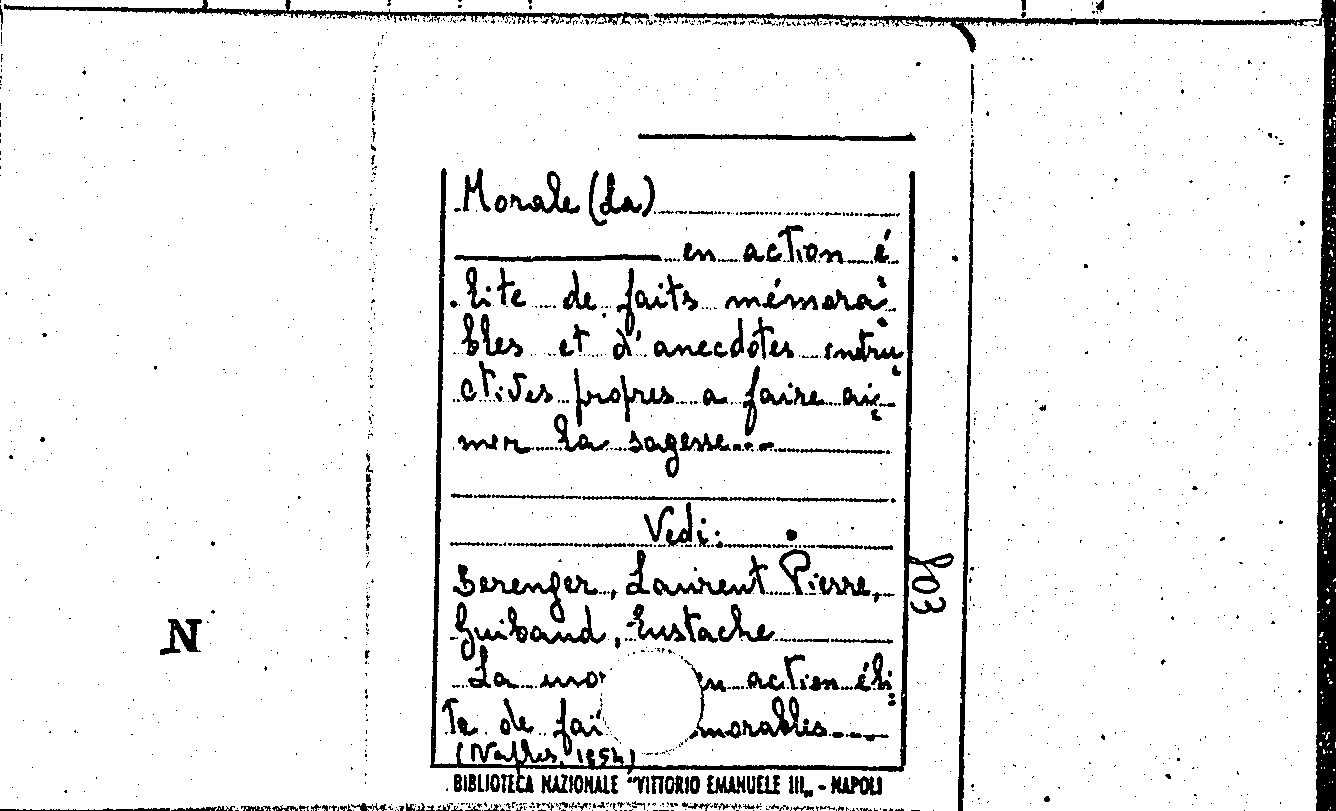 Morale (La)
en action é
lite de faits mémora=
bles et d'anecdotes instru=
ctives propres a faire ai=
mer la sagesse...
Vedi:
Berenger, Laurent Pierre,
Guibaud, Eustache
La mor en action éli=
te de fai morables...
(Naples, 1852)
BIBLIOTECA NAZIONALE "VITTORIO EMANUELE III„ - NAPOLI
803
N